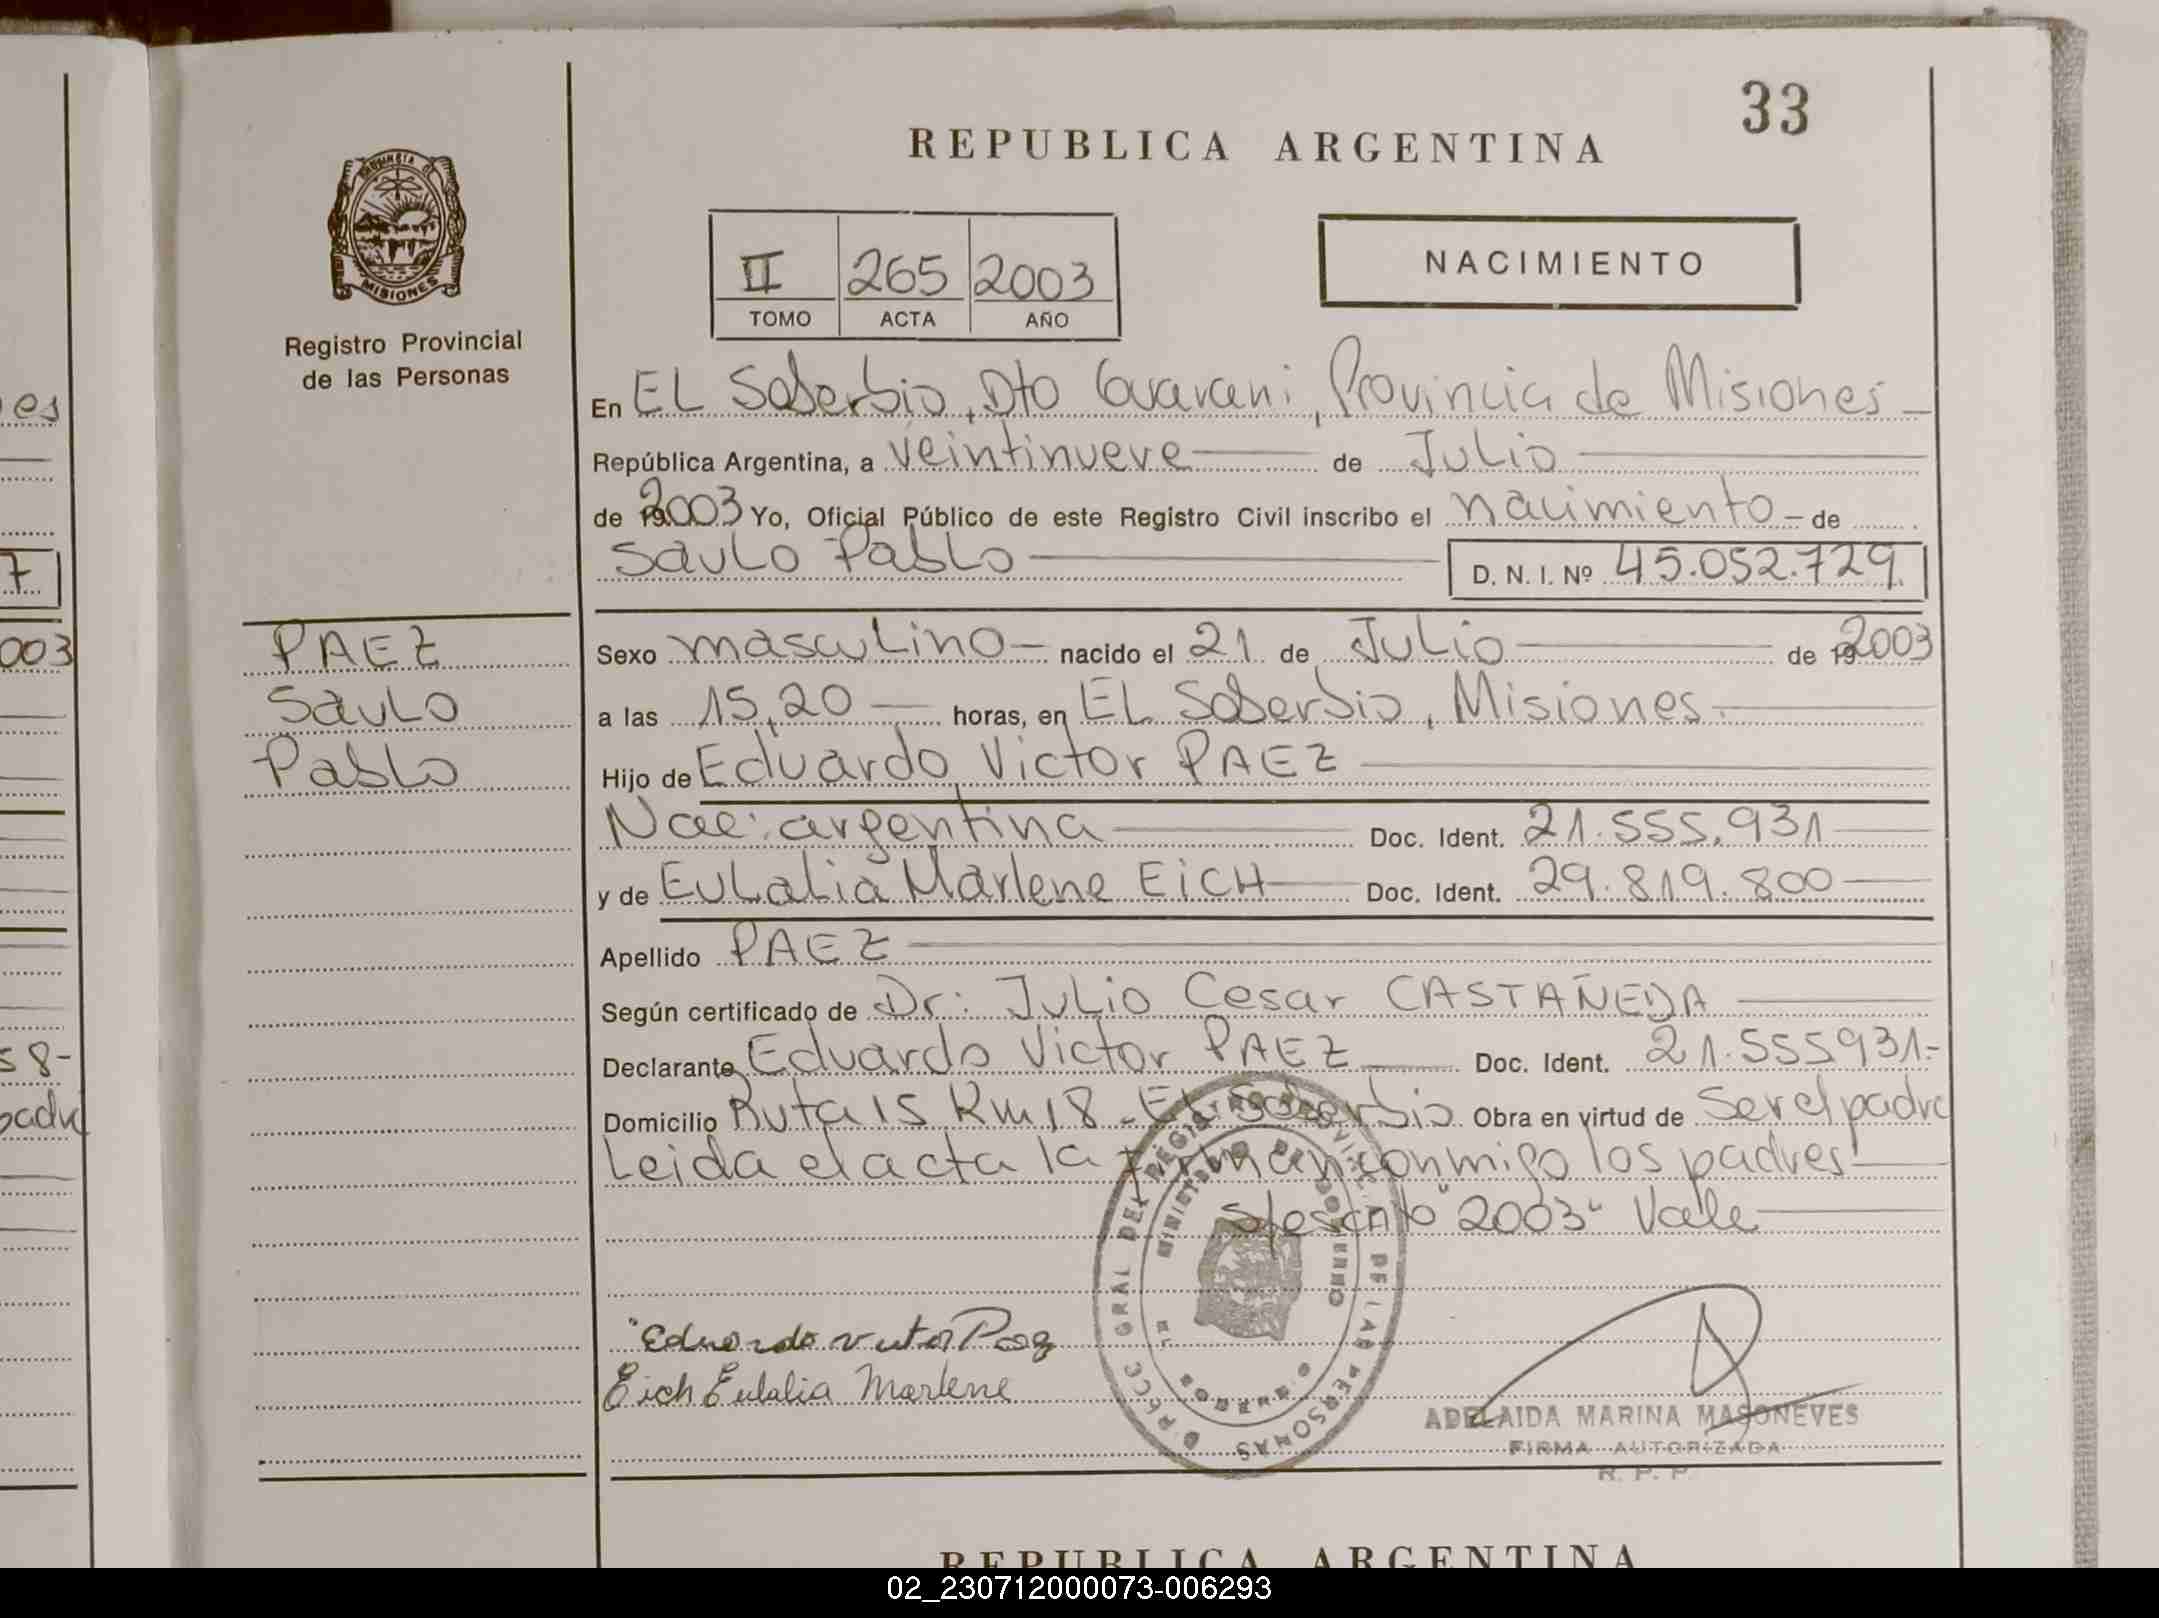 33
REPUBLICA ARGENTINA
II 265 2003
TOMO ACTA AÑO
NACIMIENTO
MISIONES
Registro Provincial
de las Personas
En EL Soberbio, Dto Guarani, Provincia de Misiones
República Argentina, a veintinueve de Julio
de 2003 Yo, Oficial Público de este Registro Civil inscribo el nacimiento de
Saulo Pablo D. N. I. Nº 45.052.729
PAEZ
Saulo
Pablo
Sexo masculino nacido el 21 de Julio de 2003
a las 15,20 horas, en EL Soberbio, Misiones.
Hijo de Eduardo Victor PAEZ
Nac: argentina Doc. Ident. 21.555.931
y de Eulalia Marlene EICH Doc. Ident. 29.819.800
Apellido PAEZ
Según certificado de Dr: Julio Cesar CASTAÑEDA
Declarante Eduardo Victor PAEZ Doc. Ident. 21.555931.-
Domicilio Ruta 15 Km 18 - EL Soberbio Obra en virtud de Ser el padre
Leida el acta la firman conmigo los padres
S/escrito "2003" Vale
Eduardo Victor Paez
Eich Eulalia Marlene
ADELAIDA MARINA MASONEVES
FIRMA AUTORIZADA
R. P. P.
REPUBLICA ARGENTINA
02_230712000073-006293
es
7
003
58-
padre